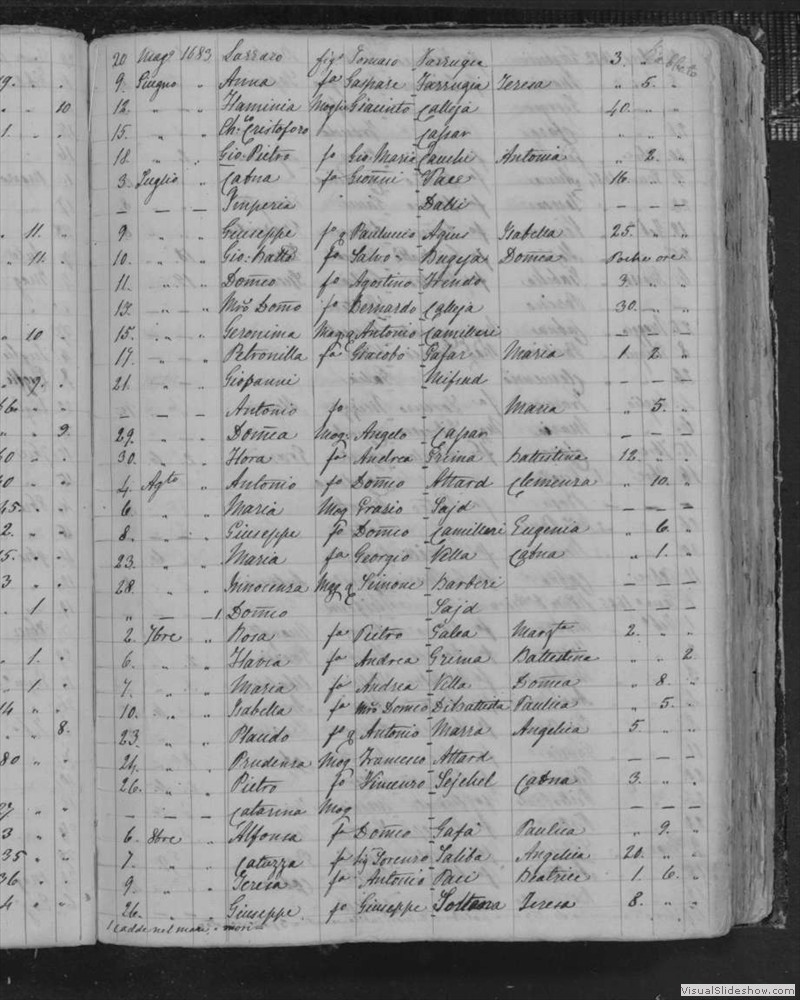 20 Magº 1683 Lazzaro figº Tomaso Farrugia 3. „
9. Giugno „ Anna fa Gaspare Farrugia Teresa „ 5. „
12. „ „ Flaminia Moglie Giacinto Calleja 40. „ „
15. „ „ Ch: Cristoforo Caxar „ „ „
18. „ „ Gio: Pietro fo Gio Maria Antonia „ 2. „
3. Luglio „ Catna fa Gionni Pace 16. „ „
— — — Imperia Dalli
9 „ „ Giuseppe fo q Paulucio Agius Isabella 25. „ „
10. „ „ Gio: Batta fo Salvo Bugeja Domca Poche ore
11. „ „ Domco fo Agostino 3. „ „
13. „ „ Mro Domco fo Bernardo Calleja 30. „ „
15. „ „ Geronima Mog q Antonio Camilleri — — —
17. „ „ Petronilla fa Giacobo Maria 1. 2. „
21. „ „ Giovanni Mifsud — — —
— — — Antonio fo Maria „ 5. „
29. „ „ Domca Mog: Angelo Caxar — — —
30. „ „ Flora fa Andrea Grima Battestina 12. „ „
4. Agto „ Antonio fo Domco Attard Clemenza „ 10. „
6. „ „ Maria Mog Grasio Sajd — — —
8. „ „ Giuseppe fo Domco Camilleri Eugenia „ 6. „
23. „ „ Maria fa Georgio Vella Catna „ 1. „
28. „ „ Innocenza Mog q Simone Barberi — — —
„ — — 1 Domco Sajd — — —
2. 7bre „ Rosa fa Pietro Galea Margta 2. „ „
6. „ „ Flavia fa Andrea Grima Battestina „ „ 2
7. „ „ Maria fa Andrea Vella Domca „ 8. „
10. „ „ Isabella fa Mro Domco Dibattista Paulica „ 5. „
23. „ „ Placido fo q Antonio Marra Angelica 5. „ „
24. „ „ Prudenza Mog Francesco Attard — — —
26. „ „ Pietro fo Vincenzo Sejchel Catna 3. „ „
— — — Catarina Mog — — —
6. 8bre „ Alfonsa fa Domco Gafà Paulica „ 9. „
7. „ „ Catuzza fa Lorenzo Saliba Angelica 20. „ „
9. „ „ Teresa fa Antonio Paci Beatrice 1. 6. „
26. „ „ Giuseppe fo Giuseppe Soltana Teresa 8. „ „
1 Cadde nel mare, e morì
VisualSlideshow.com